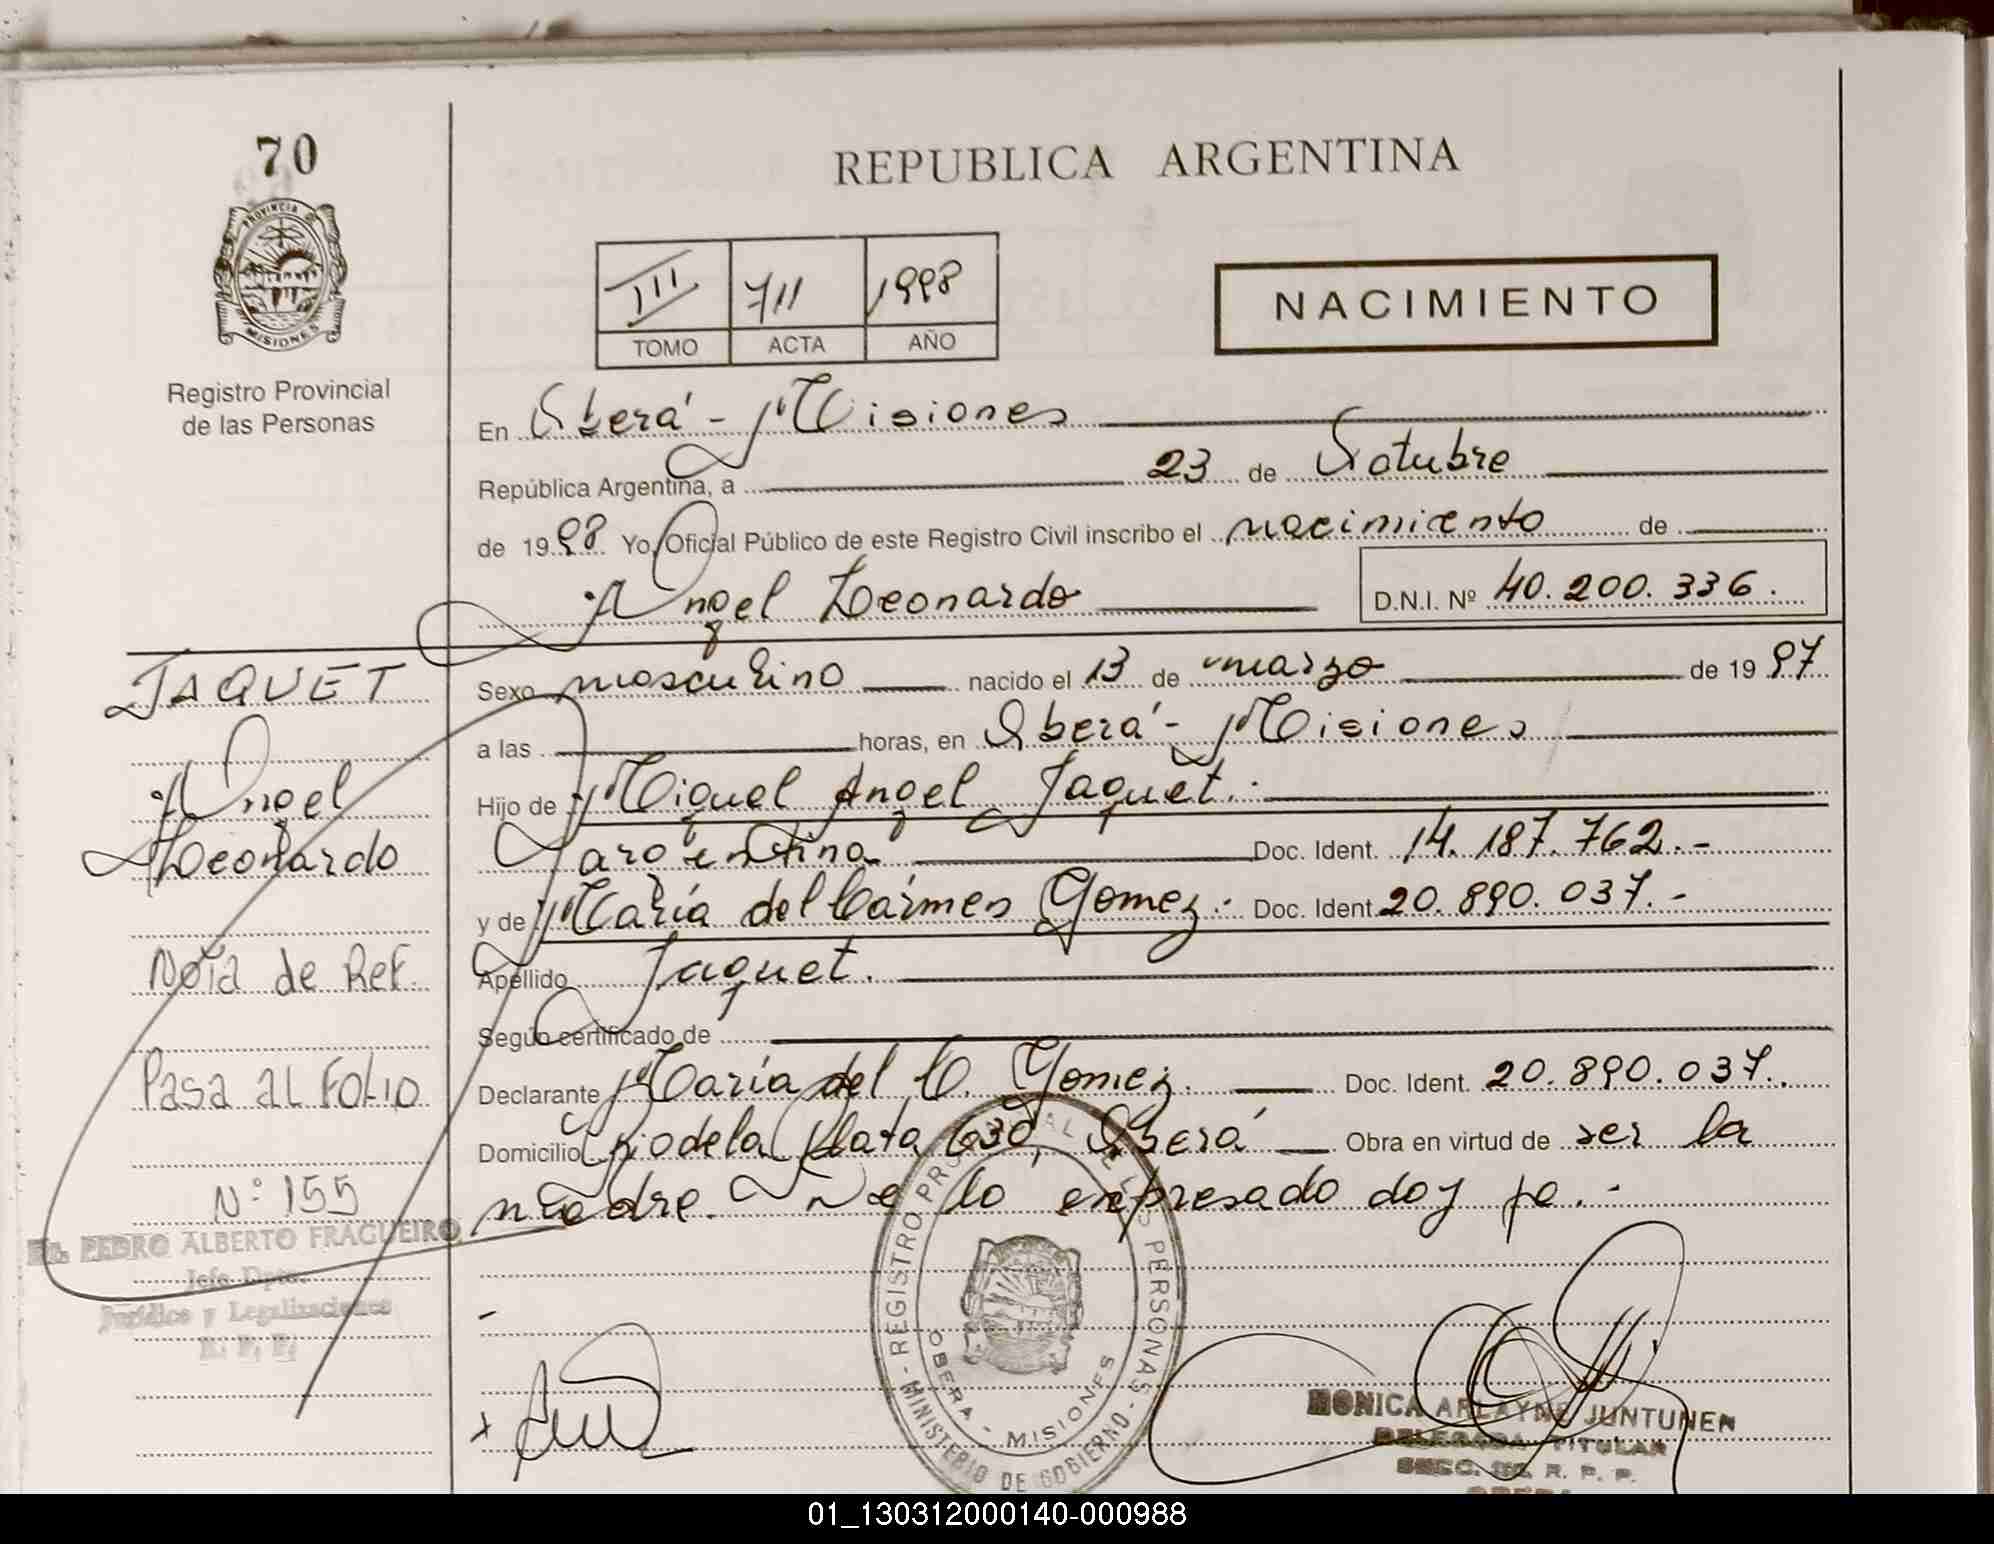 70
REPUBLICA ARGENTINA
PROVINCIA DE
MISIONES
Registro Provincial
de las Personas
III 711 1998
TOMO ACTA AÑO
NACIMIENTO
En Oberá - Misiones
República Argentina, a 23 de Octubre
de 1998 Yo, Oficial Público de este Registro Civil inscribo el nacimiento de
Angel Leonardo D.N.I. Nº 40.200.336.
JAQUET
Angel
Leonardo
Nota de Ref.
Pasa al Folio
Nº 155
PEDRO ALBERTO FRAGUEIRO
Jefe Dpto.
Jurídico y Legalizaciones
R. P. P.
Sexo masculino nacido el 13 de marzo de 1997
a las horas, en Oberá - Misiones
Hijo de Miguel Angel Jaquet.
argentina Doc. Ident. 14.187.762.-
y de María del Cármen Gomez.- Doc. Ident. 20.890.037.-
Apellido Jaquet.
Según certificado de
Declarante María del C. Gomez. Doc. Ident. 20.890.037.
Domicilio Rio de la Plata 630, Oberá Obra en virtud de ser la
madre. De lo expresado doy fe.-
- REGISTRO PROVINCIAL DE LAS PERSONAS -
MINISTERIO DE GOBIERNO
OBERA - MISIONES
MONICA ARLAYNE JUNTUNEN
DELEGADA TITULAR
SECC. R. P. P.
OBERA
01_130312000140-000988